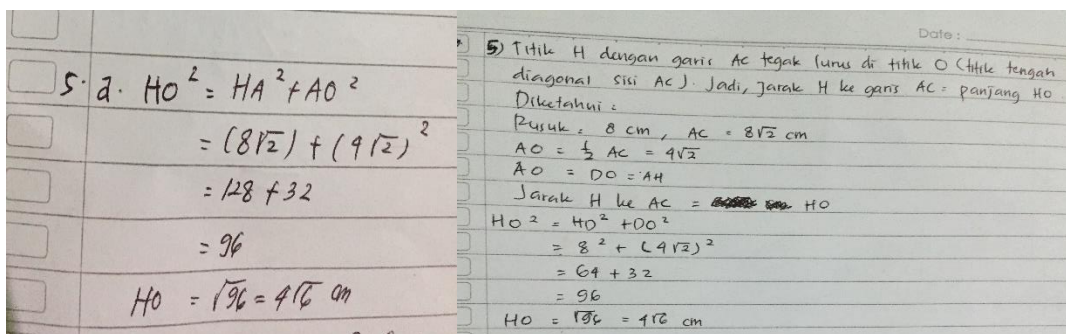 5. a. HO² = HA² + AO²
= (8√2) + (4√2)²
= 128 + 32
= 96
HO = √96 = 4√6 cm
Date :
5) Titik H dengan garis AC tegak lurus di titik O (titik tengah
diagonal sisi AC). Jadi, Jarak H ke garis AC = panjang HO
Diketahui :
Rusuk = 8 cm, AC = 8√2 cm
AO = ½ AC = 4√2
AO = DO = AH
Jarak H ke AC = HO
HO² = HD² + DO²
= 8² + (4√2)²
= 64 + 32
= 96
HO = √96 = 4√6 cm